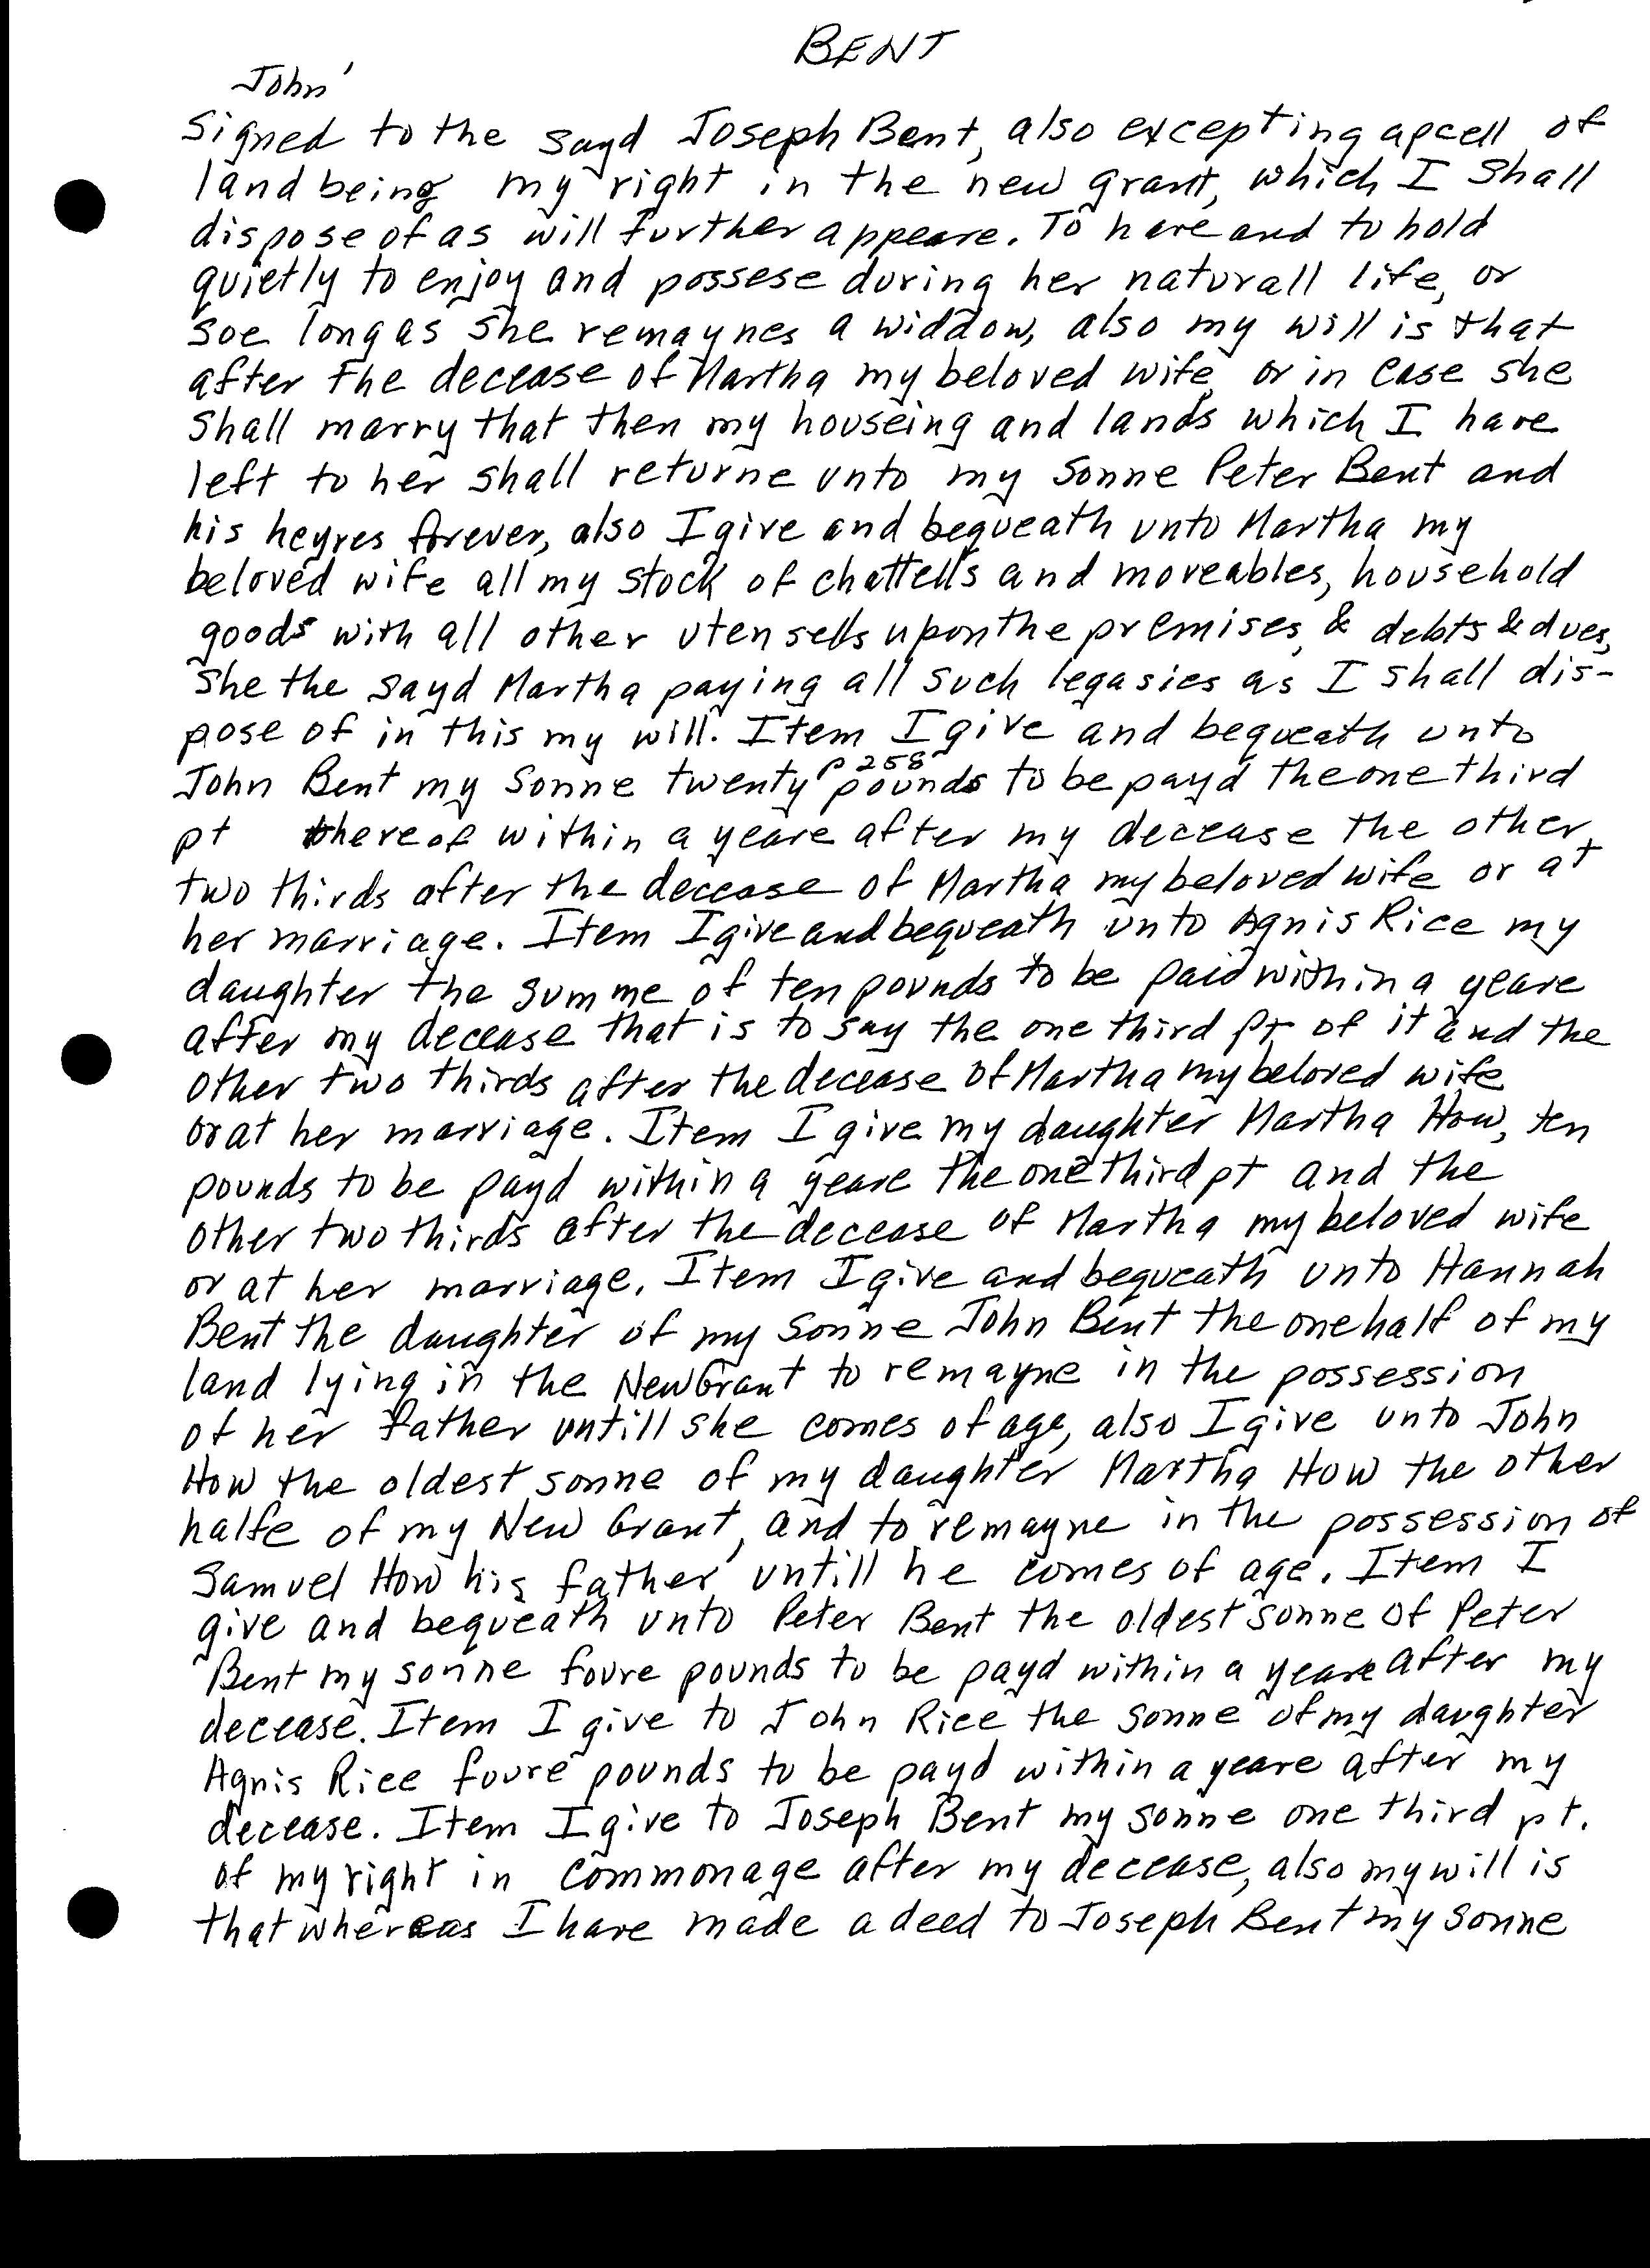 BENT
John
Signed to the Sayd Joseph Bent, also excepting a pcell of
land being my right in the new grant, which I shall
dispose of as will further appeare. To have and to hold
quietly to enjoy and possese during her naturall life, or
soe long as she remaynes a widdow, also my will is that
after the decease of Martha my beloved wife, or in case she
shall marry that then my houseing and lands which I have
left to her shall returne unto my Sonne Peter Bent and
his heyres forever, also I give and bequeath unto Martha my
beloved wife all my stock of chattells and moveables, household
goods with all other utensells upon the premises, & debts & dues,
She the Sayd Martha paying all such legasies as I shall dis-
pose of in this my will. Item I give and bequeath unto
p 258
John Bent my Sonne twenty pounds to be payd the one third
pt thereof within a yeare after my decease the other
two thirds after the decease of Martha my beloved wife or at
her marriage. Item I give and bequeath unto Agnis Rice my
daughter the summe of ten pounds to be paid within a yeare
after my decease that is to say the one third pt of it and the
other two thirds after the decease of Martha my beloved wife
or at her marriage. Item I give my daughter Martha How, ten
pounds to be payd within a yeare the one third pt and the
other two thirds after the decease of Martha my beloved wife
or at her marriage. Item I give and bequeath unto Hannah
Bent the daughter of my Sonne John Bent the one half of my
land lying in the New Grant to remayne in the possession
of her father untill she comes of age, also I give unto John
How the oldest sonne of my daughter Martha How the other
halfe of my New Grant, and to remayne in the possession of
Samuel How his father untill he comes of age. Item I
give and bequeath unto Peter Bent the oldest sonne of Peter
Bent my sonne foure pounds to be payd within a yeare after my
decease. Item I give to John Rice the sonne of my daughter
Agnis Rice foure pounds to be payd within a yeare after my
decease. Item I give to Joseph Bent my sonne one third pt.
of my right in commonage after my decease, also my will is
that whereas I have made a deed to Joseph Bent my sonne